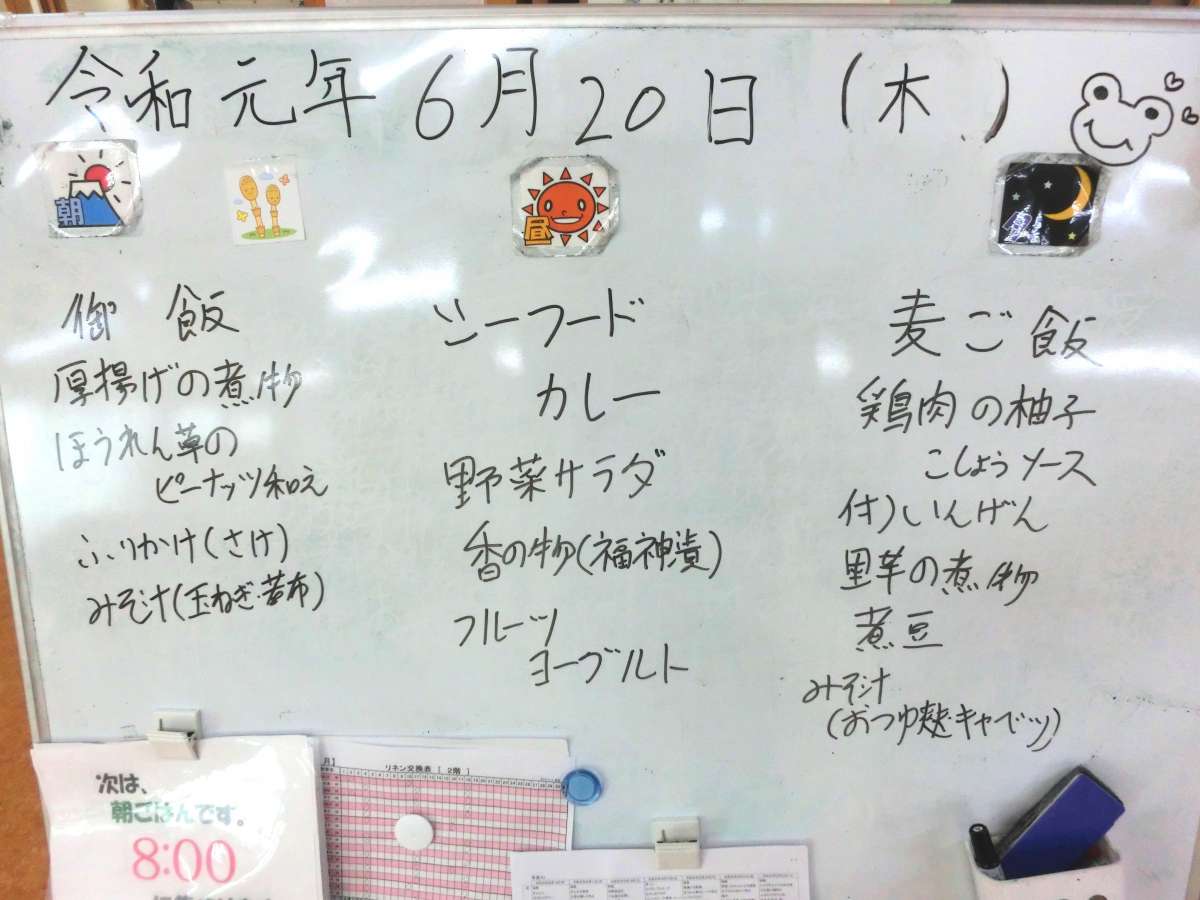 令和元年 6月20日 (木)
朝
昼
御飯
厚揚げの煮物
ほうれん草の
ピーナッツ和え
ふりかけ(さけ)
みそ汁(玉ねぎ・若布)
シーフード
カレー
野菜サラダ
香の物(福神漬)
フルーツ
ヨーグルト
麦ご飯
鶏肉の柚子
こしょうソース
付)いんげん
里芋の煮物
煮豆
みそ汁
(おつゆ麩・キャベツ)
次は、
朝ごはんです。
8:00
月】 リネン交換表 [ 2階 ]